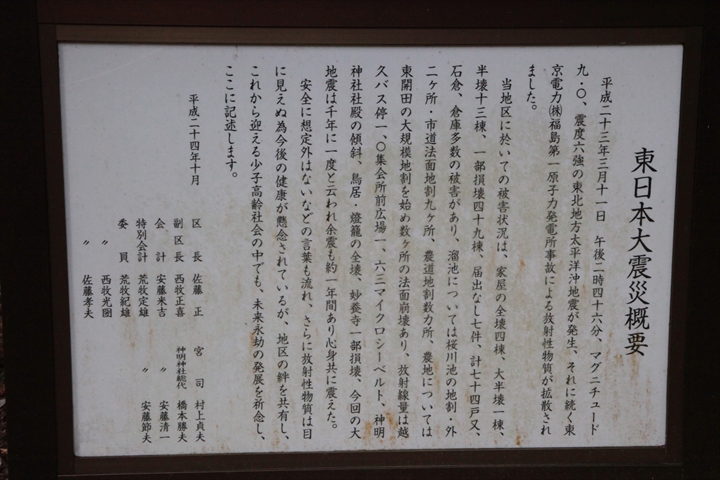 東日本大震災概要
平成二十三年三月十一日　午後二時四十六分、マグニチュード
九・〇、震度六強の東北地方太平洋沖地震が発生、それに続く東
京電力㈱福島第一原子力発電所事故による放射性物質が拡散され
ました。
当地区に於いての被害状況は、家屋の全壊四棟、大半壊一棟、
半壊十三棟、一部損壊四十九棟、届出なし七件、計七十四戸又、
石倉、倉庫多数の被害があり、溜池については桜川池の地割・外
二ヶ所・市道法面地割九ヶ所、農道地割数カ所、農地については
東開田の大規模地割を始め数ヶ所の法面崩壊あり、放射線量は越
久バス停一、〇集会所前広場一、六二マイクロシーベルト、神明
神社社殿の傾斜、鳥居・燈籠の全壊、妙養寺一部損壊、今回の大
地震は千年に一度と云われ余震も約一年間あり心身共に震えた。
安全に想定外はないなどの言葉も流れ、さらに放射性物質は目
に見えぬ為今後の健康が懸念されているが、地区の絆を共有し、
これから迎える少子高齢社会の中でも、未来永劫の発展を祈念し、
ここに記述します。
平成二十四年十月
区長　佐藤　正　宮司　村上貞夫
副区長　西牧正喜　神明神社総代　橋本勝夫
会計　安藤米吉　〃　安藤清一
特別会計　荒牧定雄　〃　安藤節夫
委員　荒牧紀雄
〃　西牧光圀
〃　佐藤孝夫